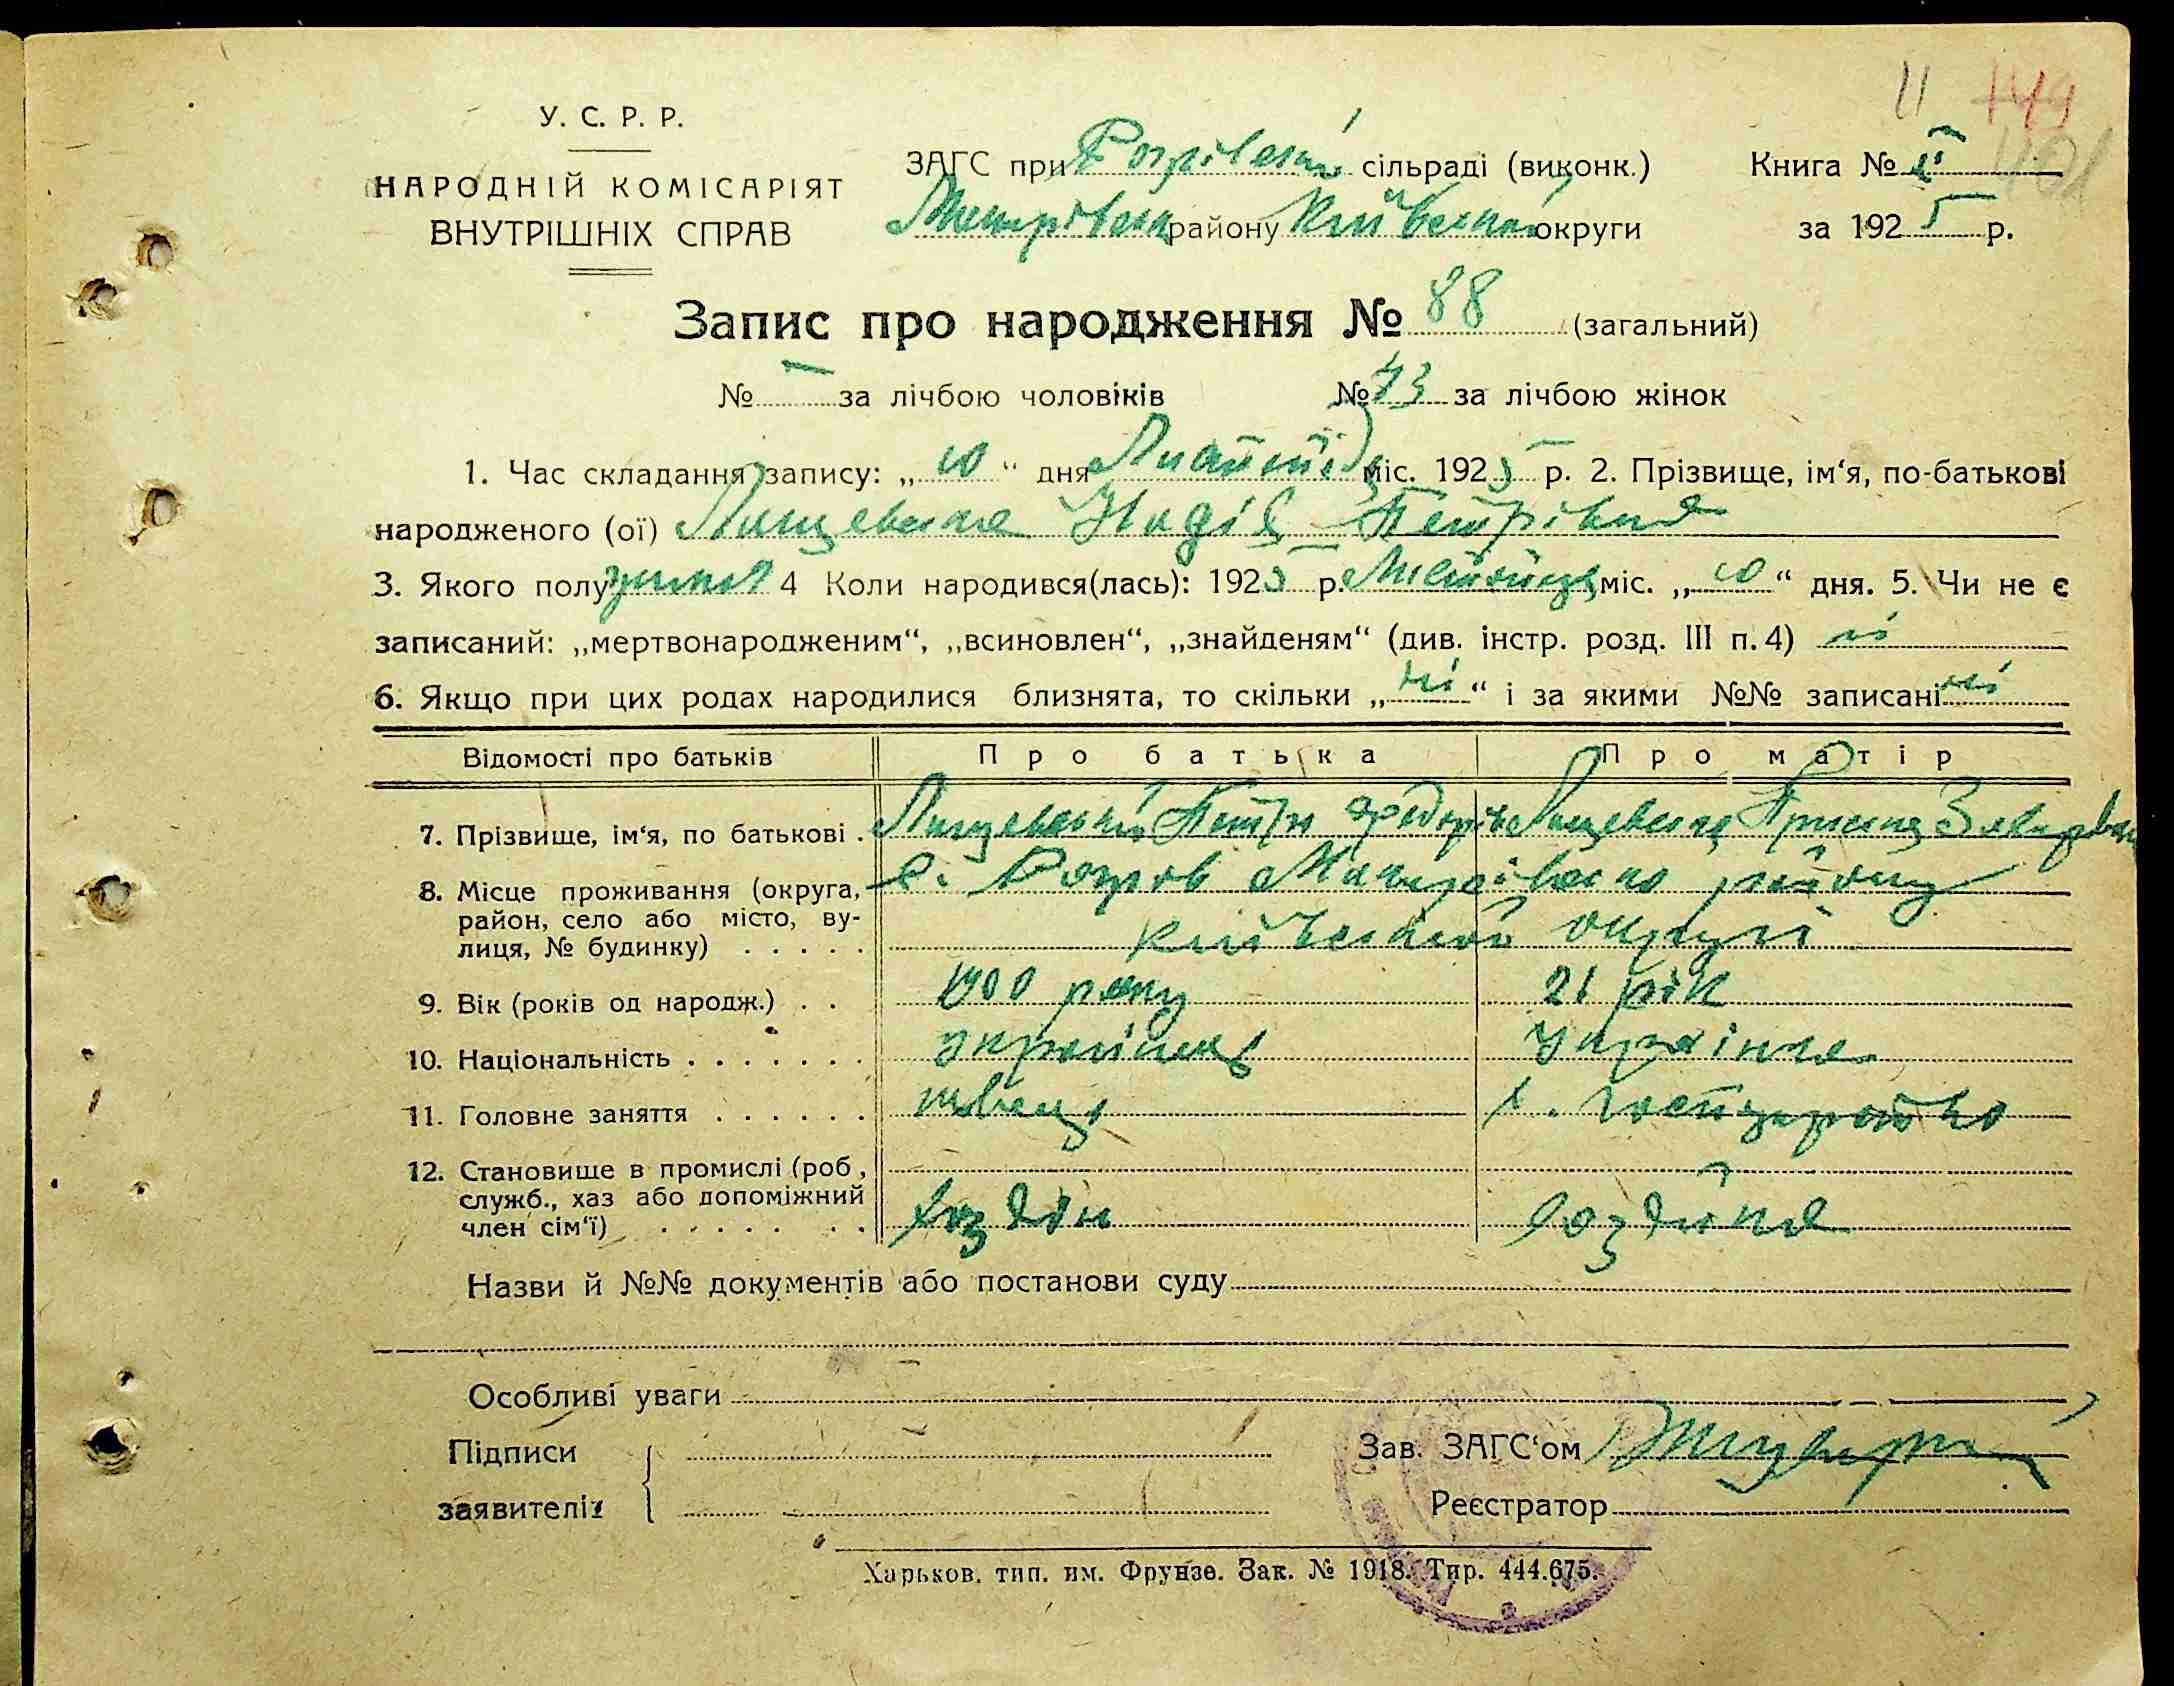 У. С. Р. Р.
НАРОДНІЙ КОМІСАРІЯТ
ВНУТРІШНІХ СПРАВ
ЗАГС при сільраді (виконк.)
району Київської округи
Книга № II
за 1925 р.
Запис про народження № 88 (загальний)
№ — за лічбою чоловіків № 43 за лічбою жінок
1. Час складання запису: „10“ дня міс. 1925 р. 2. Прізвище, ім‘я, по-батькові
народженого (ої) Лищевська Надія Петрівна
3. Якого полу жіноч 4 Коли народився(лась): 1925 р. міс. „10“ дня. 5. Чи не є
записаний: „мертвонародженим“, „всиновлен“, „знайденям“ (див. інстр. розд. III п. 4) ні
6. Якщо при цих родах народилися близнята, то скільки „ні“ і за якими №№ записані ні
Відомості про батьків Про батька Про матір
7. Прізвище, ім‘я, по батькові . Лищевський Петро Федорів Лищевська Прися Захарівна
8. Місце проживання (округа, район, село або місто, вулиця, № будинку) . . . . . с. району
Київської округи
9. Вік (років од народж.) . . 1900 року 21 рік
10. Національність . . . . . . . українець Українка
11. Головне заняття . . . . . . швець с. господарство
12. Становище в промислі (роб , служб., хаз або допоміжний член сім‘ї) . . . . . . . хозяїн хозяйка
Назви й №№ документів або постанови суду
Особливі уваги
Підписи
заявителів
Зав. ЗАГС‘ом
Реєстратор
Харьков. тип. им. Фрунзе. Зак. № 1918. Тир. 444.675.